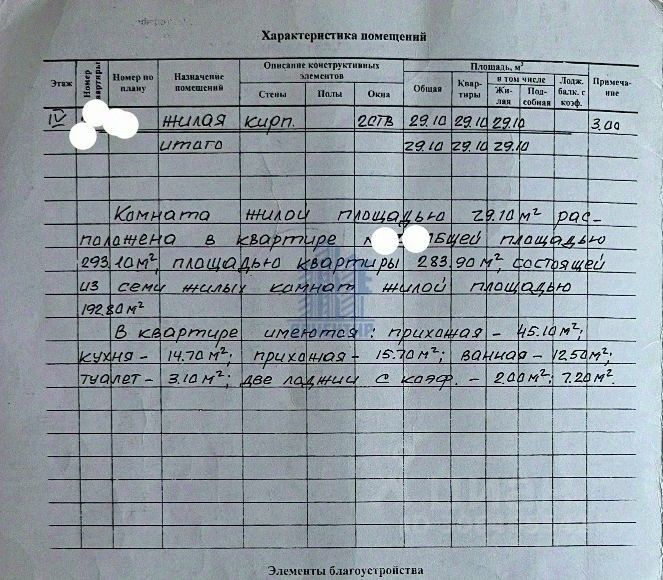 Характеристика помещений
Этаж
Номер квартиры
Номер по плану
Назначение помещений
Описание конструктивных элементов
Стены
Полы
Окна
Площадь, м²
Общая
Квартиры
в том числе
Жилая
Подсобная
Лодж. балк. с коэф.
Примечание
IV жилая кирп. 2ств 29.10 29.10 29.10 3.00
итого 29.10 29.10 29.10
Комната жилой площадью 29.10 м² рас-
положена в квартире общей площадью
293.10 м², площадью квартиры 283.90 м², состоящей
из семи жилых комнат жилой площадью
192.80 м²
В квартире имеются: прихожая - 45.10 м²;
кухня - 14.70 м²; прихожая - 15.70 м²; ванная - 12.50 м²;
туалет - 3.10 м²; две лоджии с коэф. - 2.00 м²; 7.20 м².
Элементы благоустройства